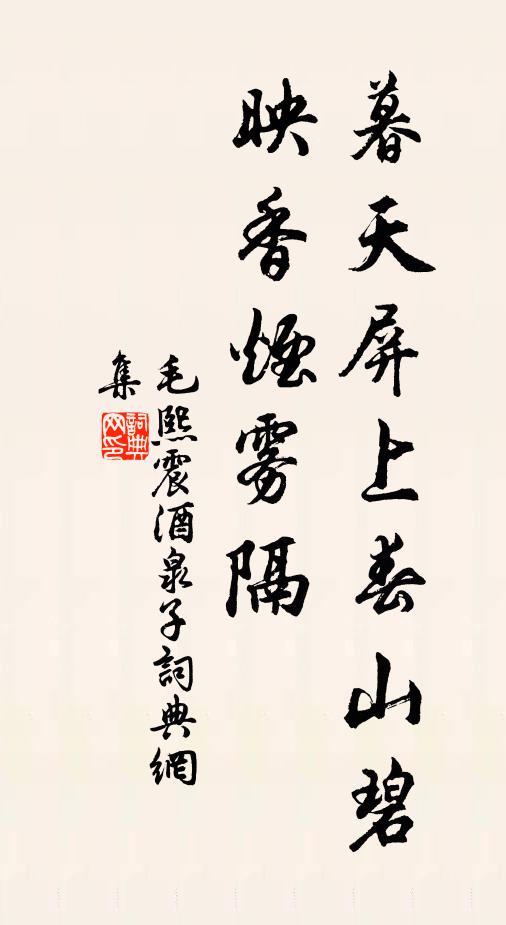 暮天屏上春山碧
映香煙雾隔
毛熙震酒泉子詞典網
集
詞典
网印